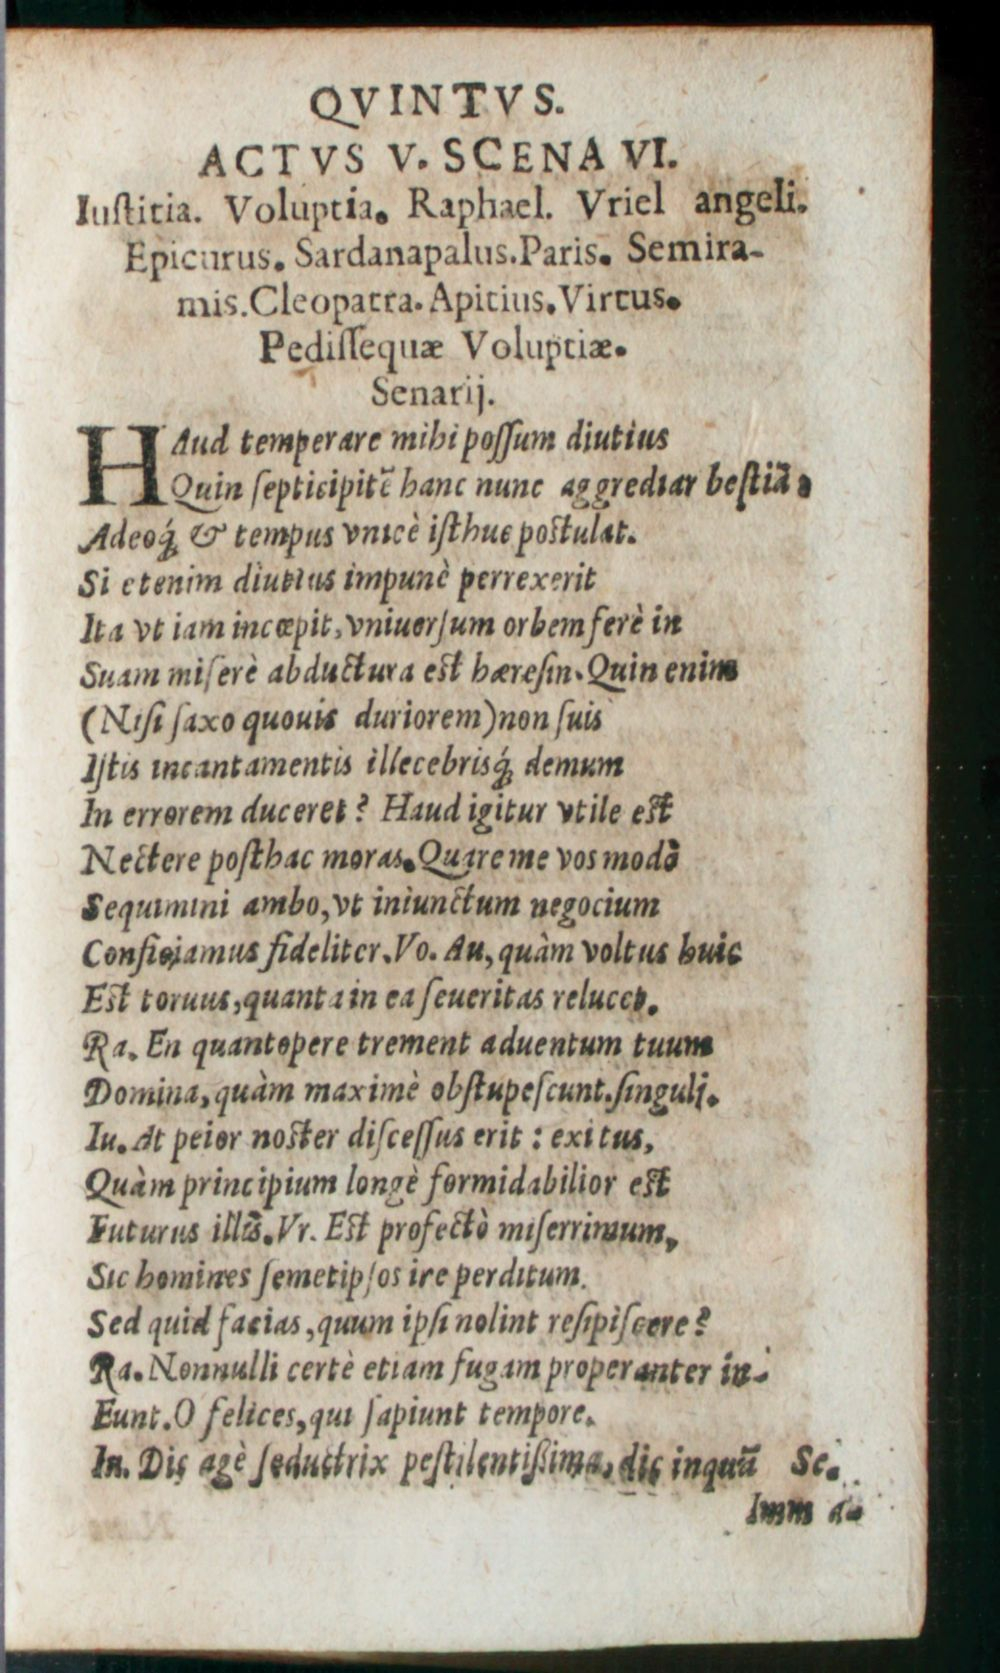 QVINTVS.
ACTVS V. SCENA VI.
Iuſtitia. Voluptia. Raphael. Vriel angeli.
Epicurus. Sardanapalus. Paris. Semira-
mis. Cleopatra. Apitius. Virtus.
Pediſſequæ Voluptiæ.
Senarij.
HAud temperare mihi poſſum diutius
Quin ſepticipitē hanc nunc aggrediar beſtiā,
Adeoq́; & tempus vnicè iſthuc poſtulat.
Si etenim diutius impunè perrexerit
Ita vt iam incœpit, vniuerſum orbem ferè in
Suam miſerè abductura eſt hæreſin. Quin enim
(Niſi ſaxo quouis duriorem) non ſuis
Iſtis incantamentis illecebrisq́; demum
In errorem duceret? Haud igitur vtile eſt
Nectere poſthac moras. Quare me vos modò
Sequimini ambo, vt iniunctum negocium
Conficiamus fideliter. Vo. Au, quàm voltus huic
Eſt toruus, quanta in ea ſeueritas relucet.
Ra. En quantopere trement aduentum tuum
Domina, quàm maximè obſtupeſcunt. ſinguli.
Iu. At peior noſter diſceſſus erit : exitus,
Quàm principium longè formidabilior eſt
Futurus illis. Vr. Eſt profectò miſerrimum,
Sic homines ſemetipſos ire perditum.
Sed quid facias, quum ipſi nolint reſipiſcere?
Ra. Nonnulli certè etiam fugam properanter in-
Eunt. O felices, qui ſapiunt tempore.
In. Dic agè ſeductrix peſtilentißima, dic inquā Se.
Imm a-